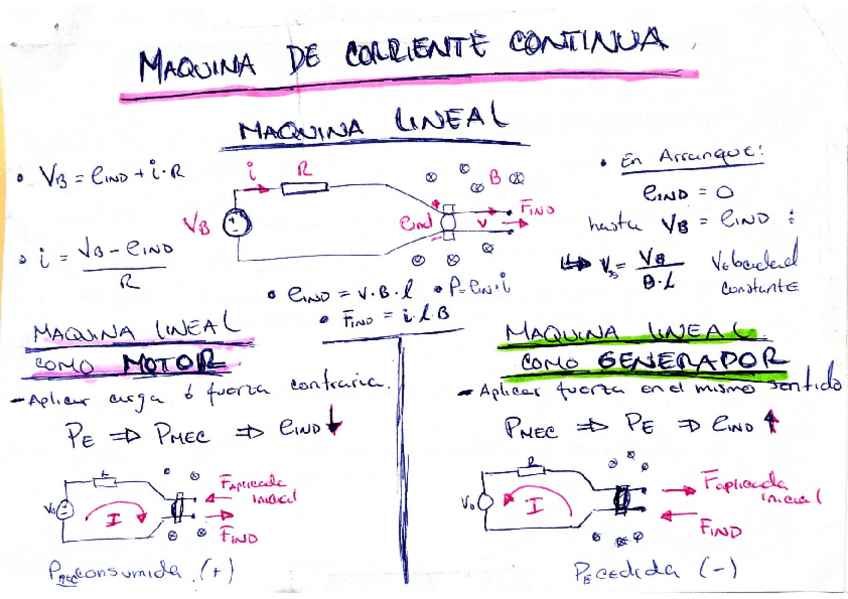 MAQUINA DE CORRIENTE CONTINUA
MAQUINA LINEAL
• VB = eIND + i·R
• i = VB - eIND / R
i R
VB
eind
+
-
B
V
FIND
• eIND = V·B·l • P = eIN·i
• FIND = i·l·B
• En Arranque:
eIND = 0
hasta VB = eIND
⇒ Vss = VB / B·l Velocidad
constante
MAQUINA LINEAL
COMO MOTOR
- Aplicar carga ó fuerza contraria.
PE ⇒ PMEC ⇒ eIND ↓
I
Faplicada
inicial
FIND
consumida (+)
MAQUINA LINEAL
COMO GENERADOR
- Aplicar fuerza en el mismo sentido
PMEC ⇒ PE ⇒ eIND ↑
R
I
Faplicada
inicial
FIND
PE cedida (-)